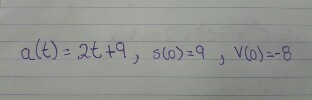 a(t) = 2t+9, s(0)=9, v(0)=-8